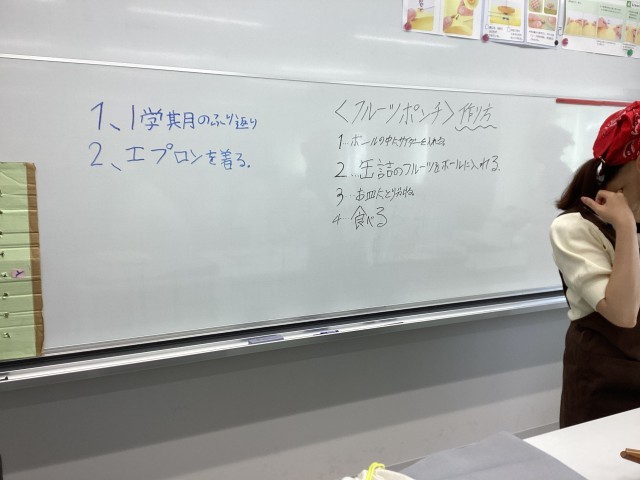 1、1学期月のふり返り
2、エプロンを着る。
<フルーツポンチ>作り方
1…ボールの中にサイダーを入れる
2…缶詰のフルーツをボールに入れる
3…お皿にとり分ける
4…食べる